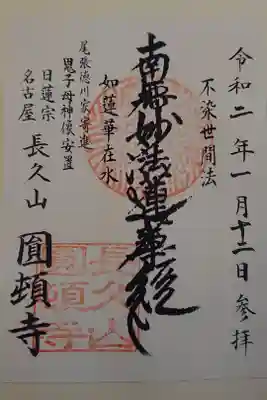 令和二年一月十二日参拝
不染世間法
南無妙法蓮華経
如蓮華在水
尾張徳川家寄進
鬼子母神像安置
日蓮宗
名古屋 長久山 圓頓寺
長久山
圓頓寺